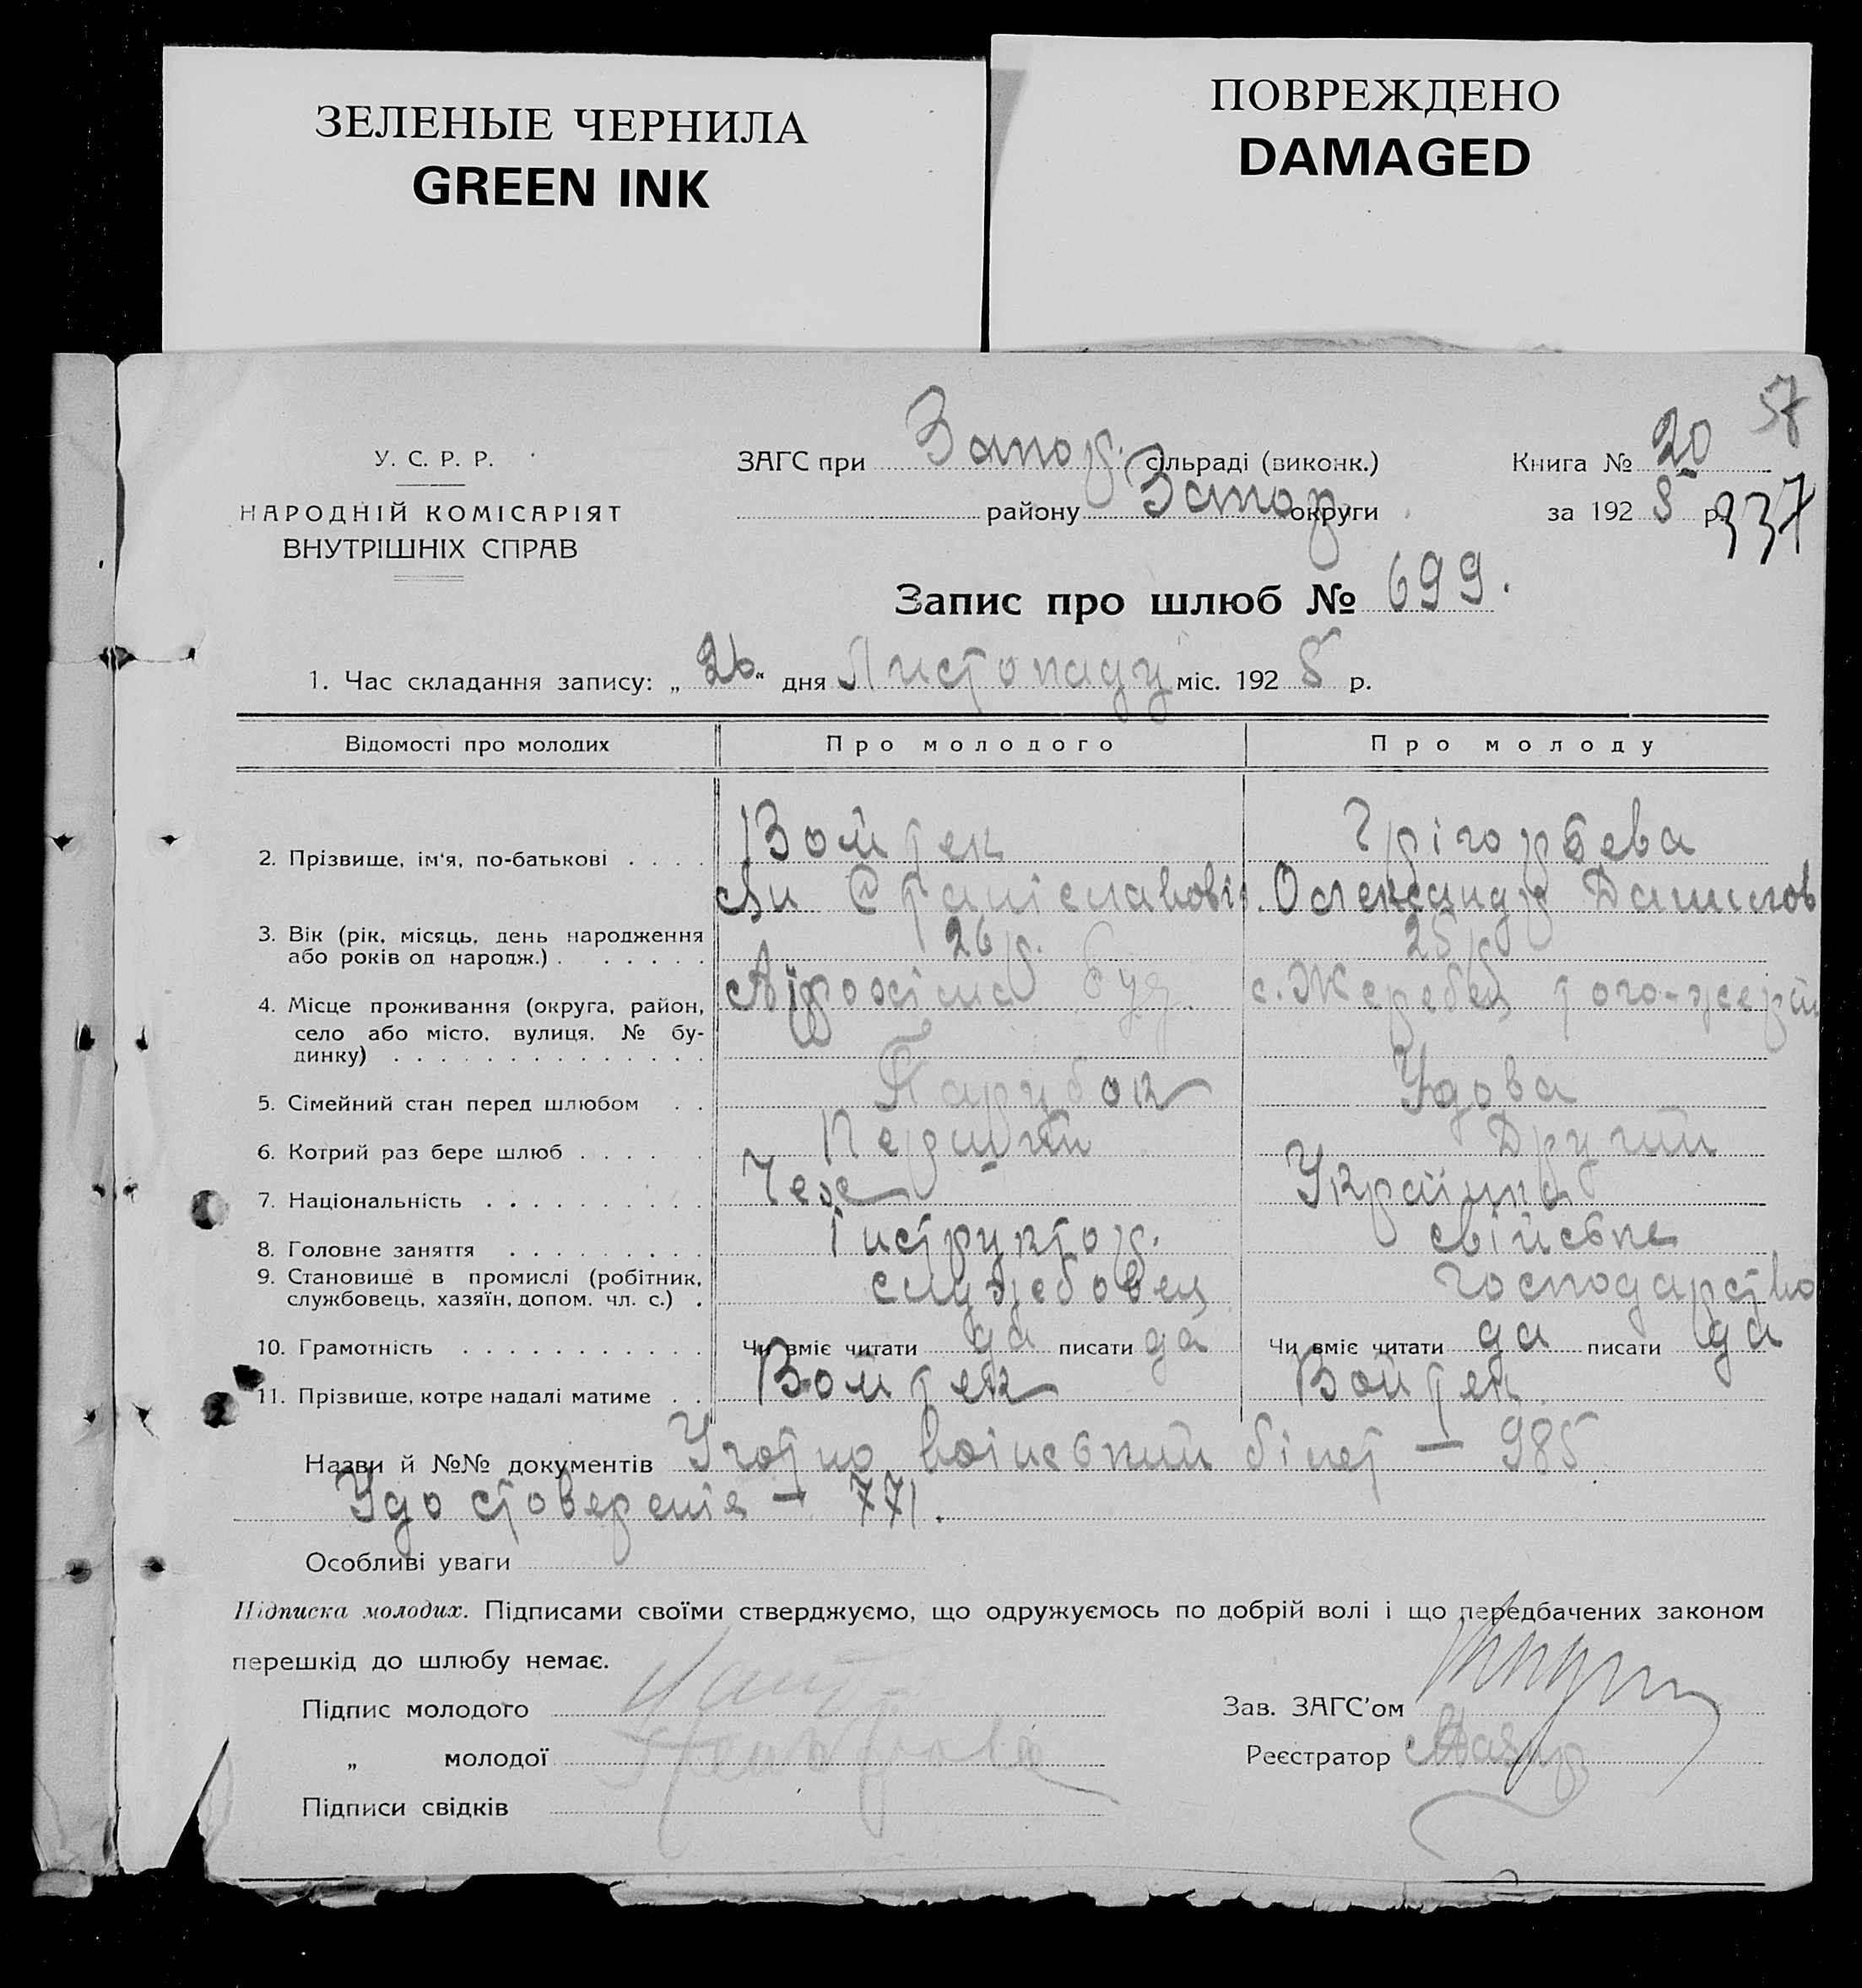 ЗЕЛЕНЫЕ ЧЕРНИЛА
GREEN INK
ПОВРЕЖДЕНО
DAMAGED
57
У. С. Р. Р.
НАРОДНІЙ КОМІСАРІЯТ
ВНУТРІШНІХ СПРАВ
ЗАГС при Запор. сільраді (виконк.)
району Запор округи
Книга № 20
за 192 5 р.
337
Запис про шлюб № 699.
1. Час складання запису: „ 26 “ дня Листопаду міс. 192 5 р.
Відомості про молодих Про молодого Про молоду
2. Прізвище, ім'я, по-батькові . . . . Войтек Грігорьева
Ян Станіславовіч. Олександра Данилов
3. Вік (рік, місяць, день народження або років од народж.) . . . . . . 26 р. 25 р.
4. Місце проживання (округа, район, село або місто, вулиця, № будинку) . . . . . . . . . . . . . . с. Жеребец того-же
5. Сімейний стан перед шлюбом . . Парубок Удова
6. Котрий раз бере шлюб . . . . . Перший Другий
7. Національність . . . . . . . . . . Чех Українка
8. Головне заняття . . . . . . . . . Інструктор. свійське
9. Становище в промислі (робітник, службовець, хазяїн, допом. чл. с.) . служебовец господарство
10. Грамотність . . . . . . . . . . . Чи вміє читати да писати да Чи вміє читати да писати да
11. Прізвище, котре надалі матиме . . Войтек Войтек
Назви й №№ документів Учотно воінський білет — 985
Удостоверенія — 771.
Особливі уваги
Підписка молодих. Підписами своїми стверджуємо, що одружуємось по добрій волі і що передбачених законом
перешкід до шлюбу немає.
Підпис молодого
Зав. ЗАГС'ом
„ молодої
Реєстратор
Підписи свідків